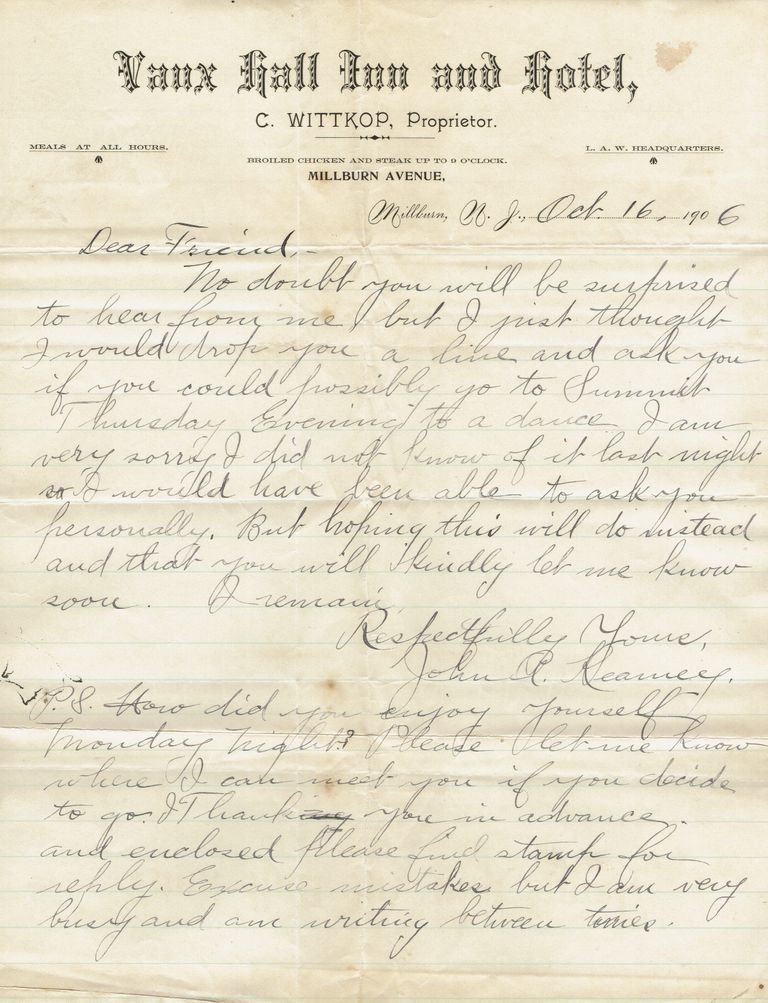 Vaux Hall Inn and Hotel,
C. WITTKOP, Proprietor.
MEALS AT ALL HOURS.
L. A. W. HEADQUARTERS.
BROILED CHICKEN AND STEAK UP TO 9 O'CLOCK.
MILLBURN AVENUE,
Millburn, N. J., Oct. 16, 1906
Dear Friend,-
No doubt you will be surprised
to hear from me, but I just thought
I would drop you a line and ask you
if you could possibly go to Summit
Thursday Evening to a dance. I am
very sorry I did not know of it last night
so I would have been able to ask you
personally. But hoping this will do instead
and that you will kindly let me know
soon. I remain,
Respectfully Yours,
John R. Kearney.
P.S. How did you enjoy yourself
Monday Night? Please let me know
where I can meet you if you decide
to go. I Thanking you in advance.
and enclosed Please find stamp for
reply. Excuse mistakes but I am very
busy and am writing between times.